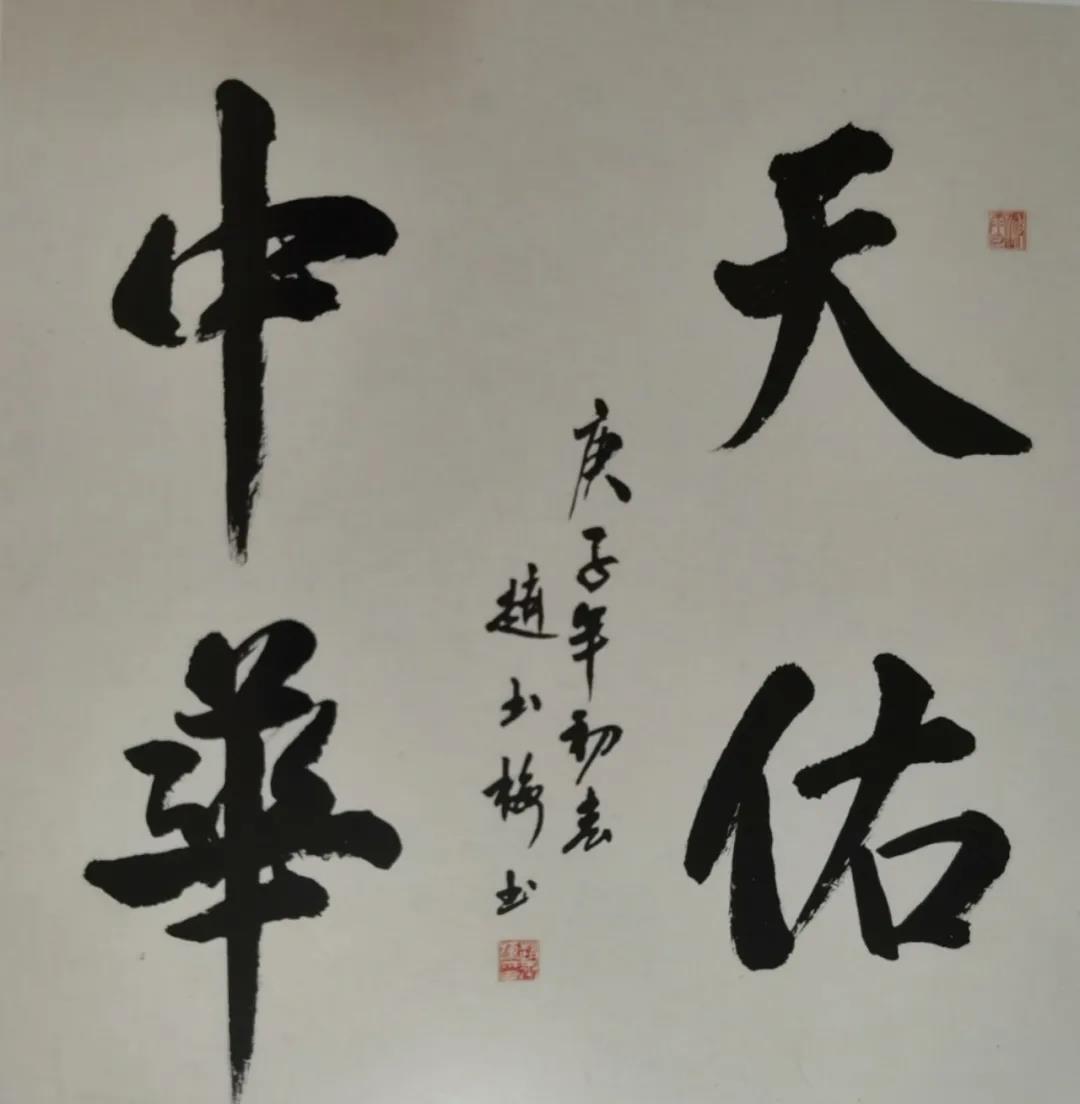 天佑
中華
庚子年初春
趙玉梅书